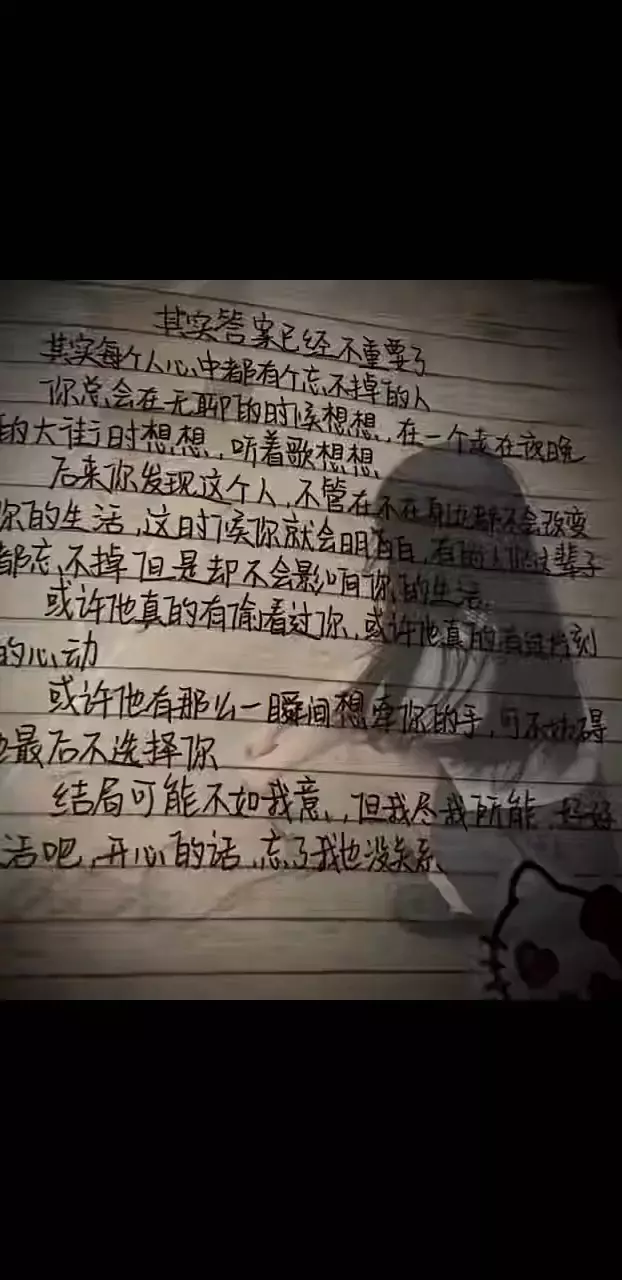 其实答案已经不重要了
其实每个人心中都有个忘不掉的人
你总会在无聊的时候想想,在一个走在夜晚
的大街时想想,听着歌想想,
后来你发现这个人,不管在不在身边都不会改变
你的生活,这时候你就会明白,有的人你这辈子
都忘不掉但是却不会影响你的生活,
或许他真的有偷看过你,或许他真的有
的心动
或许他有那么一瞬间想牵你的手,可不妨碍
他最后不选择你
结局可能不如我意,但我尽我所能,好好
活吧,开心的话,忘了我也没关系